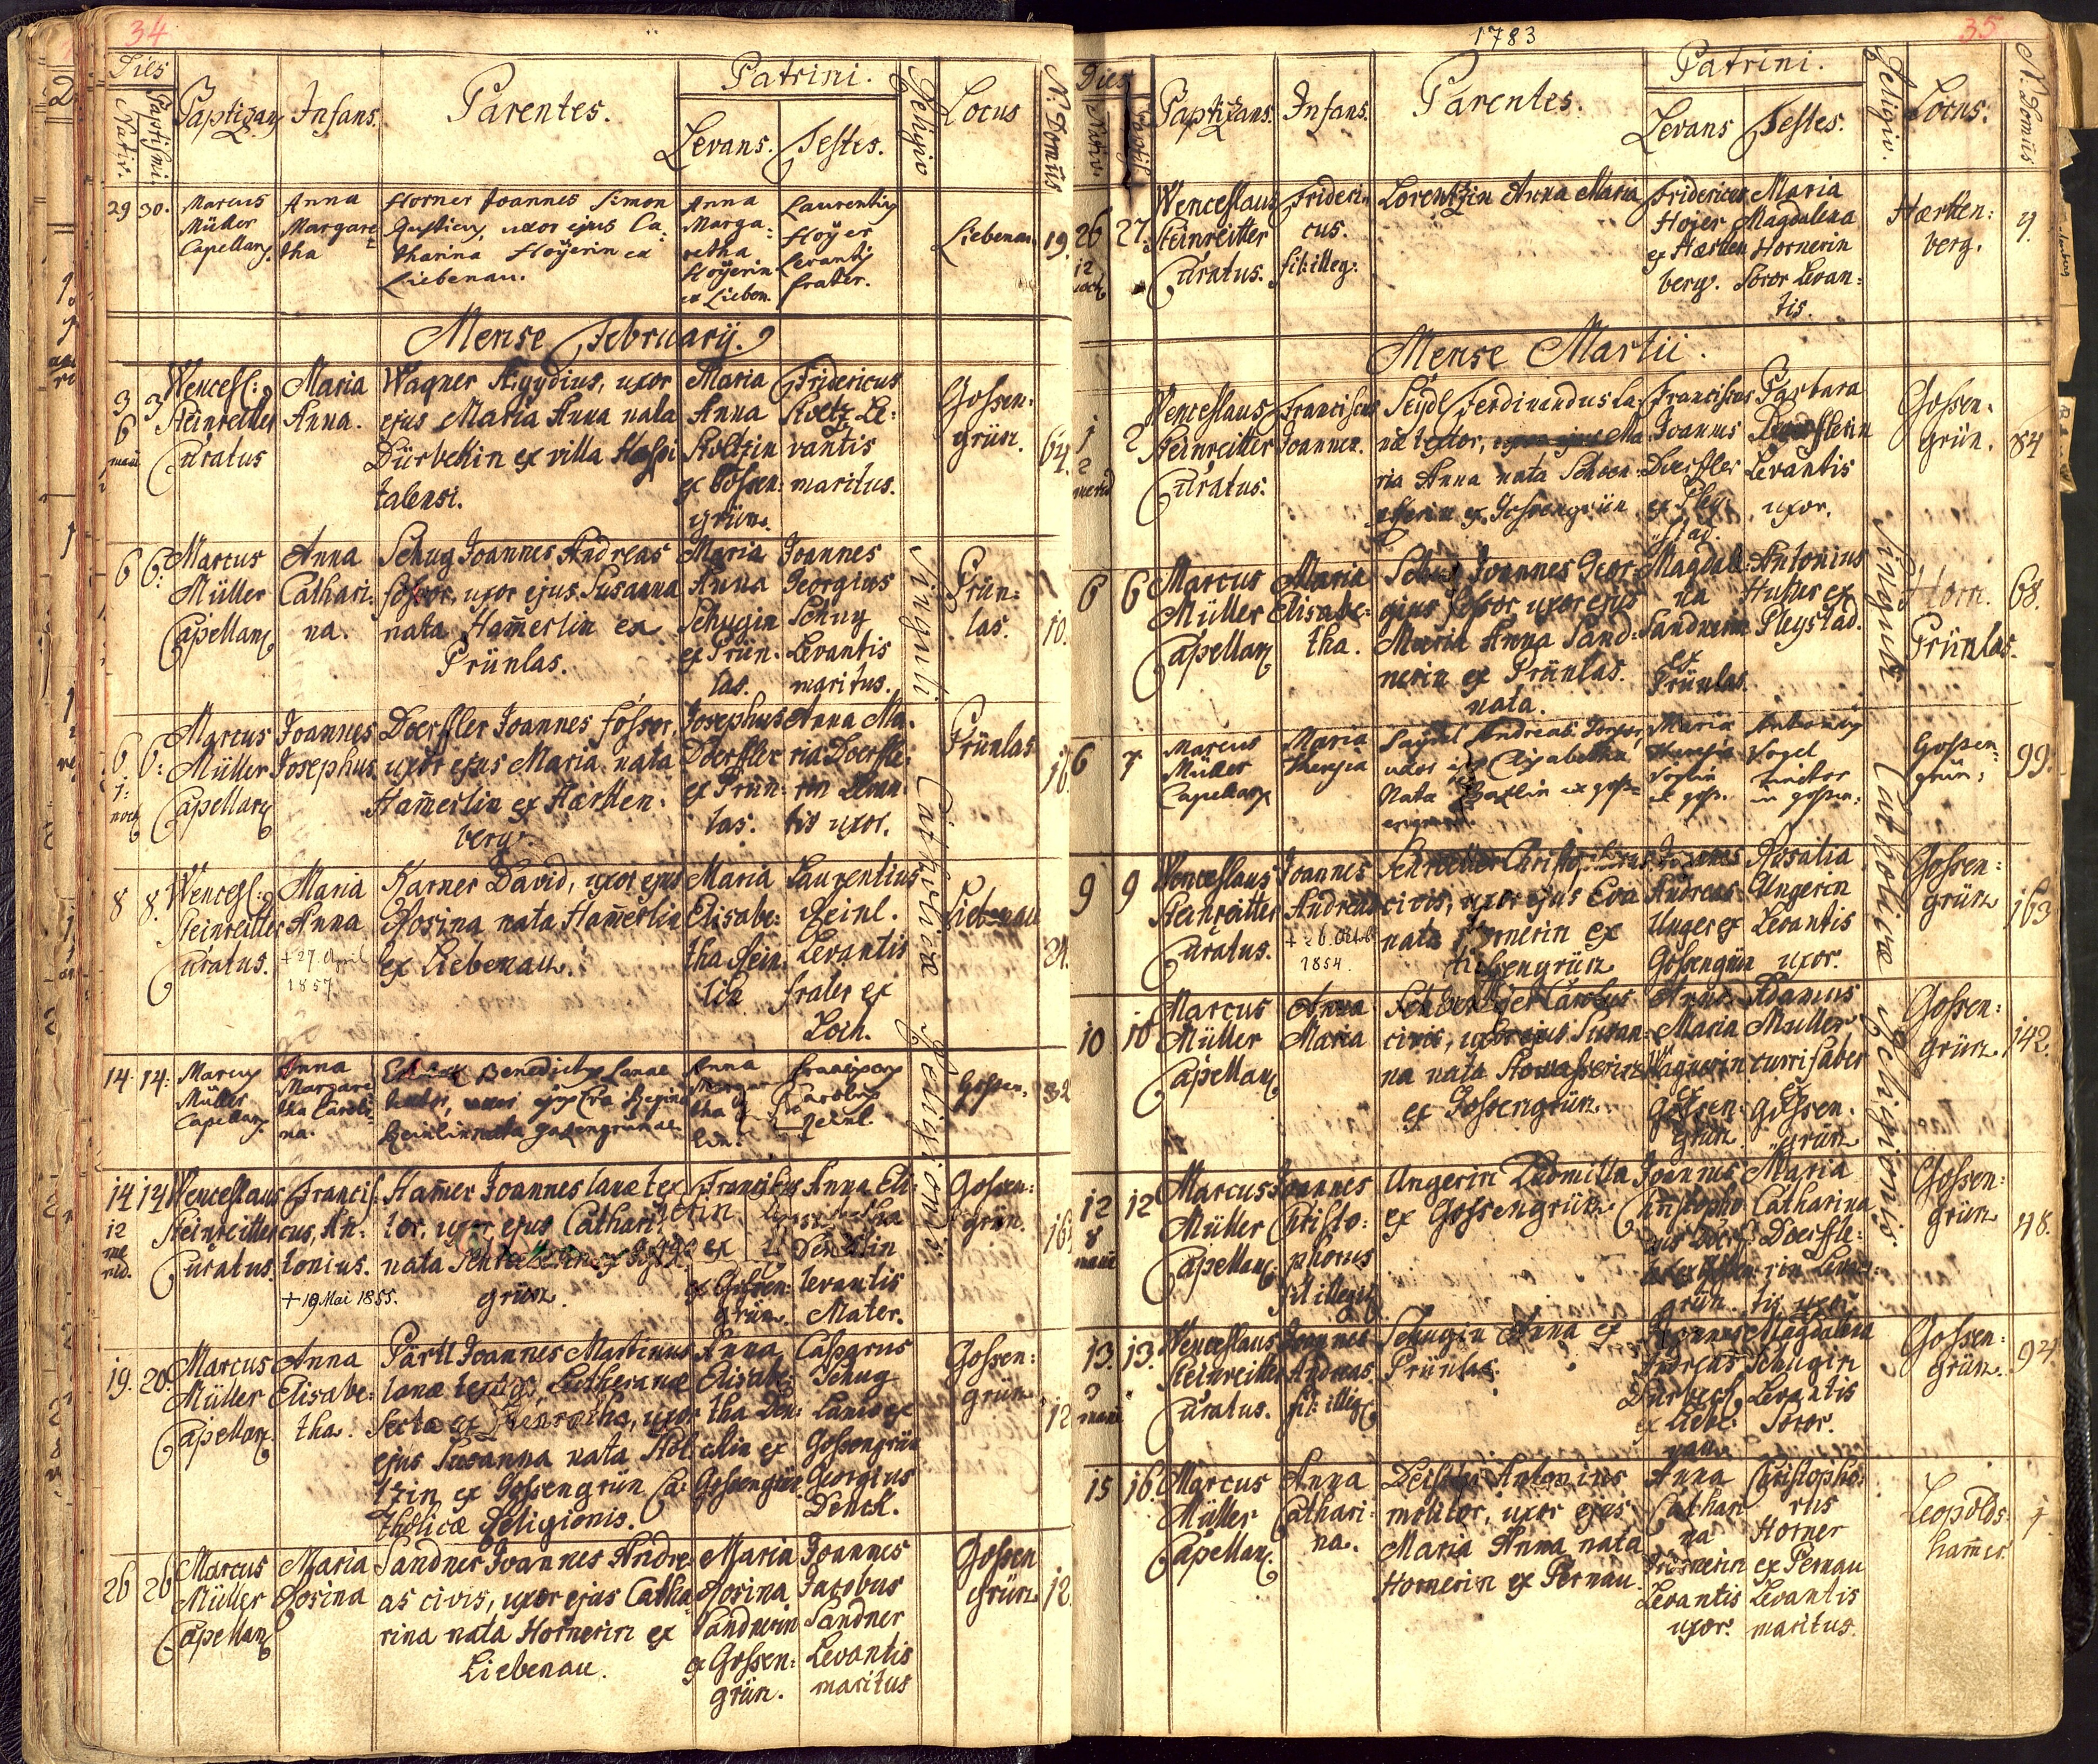 34
Dies
Nativ.
Baptismi.
Baptizans
Infans.
Parentes.
Patrini.
Levans.
Testes.
Religio
Locus
N. Domus
29 30.
Marcus
Müller
Capellanus
Anna
Margare-
tha
Horner Joannes Simon
uxor ejus Ca-
tharina Hoÿerin ex
Liebenau.
Anna
Marga-
retha
Hoÿerin
ex Lieben.
Laurentius
Hoÿer
Levantis
frater.
Liebenau
19.
Mense Februarij.
3
6
mane
3
Wencesl:
Steinreitter
Curatus
Maria
Anna.
Wagner Aegydius, uxor
ejus Maria Anna nata
Dürbeckin ex villa Hospi
talensi.
Maria
Anna
Roltzin
ex Gossen:
grün.
Fridericus
Roltz Le:
vantis
maritus.
Gossen:
grün.
64.
6 6:
Marcus
Müller
Capellanus
Anna
Cathari:
na.
Schug Joannes Andreas
fossor, uxor ejus Susanna
nata Ham̄erlin ex
Prünlas.
Maria
Anna
Schugin
ex Prün:
las.
Joannes
Georgius
Schug
Levantis
maritus.
Prün:
las.
10.
6
1:
noct
6:
Marcus
Müller
Capellanus
Joannes
Josephus
Doerffler Joannes fossor,
uxor ejus Maria nata
Ham̄erlin ex Harten:
berg.
Josephus
Doerffler
ex Prün:
las.
Anna Ma:
ria Doerffle:
rin Levan:
tis uxor.
Prünlas
16.
8 8.
Wencesl:
Steinreitter
Curatus.
Maria
Anna
+ 27. April
1857
Karner David, uxor ejus
Rosina nata Ham̄erlin
ex Liebenau.
Maria
Elisabe:
tha Hein:
lin
Laurentius
Heinl.
Levantis
frater ex
Loch.
Liebenau
24.
14 14:
Marcus
Müller
Capellanus
Anna
Margare
tha Caroli-
na.
Benedictus lanae
textor, uxor ejus Eva Regina
Anna
Margare
tha
Franciscus
Carolus
Heinl.
Gossen.
32
14
12
me
rid.
14
Wenceslaus
Steinreitter
Curatus.
Francis:
cus, An:
tonius.
+ 19 Mai 1855.
Ham̄er Joannes lanae tex
tor, uxor ejus Cathari
nata
grün.
Franciscus
ex Gossen:
grün.
Anna Eli:
Levantis
Mater.
Gossen:
grün.
19. 20.
Marcus
Müller
Capellanus
Anna
Elisabe:
tha.
Pärtl Joannes Martinus
lanae textor, Lutheranae
Sectae ex uxor
ejus Susanna nata Höl
tzin ex Gossengrün Ca:
tholicae Religionis.
Anna
Elisabe:
tha Den:
ckin ex
Gossengrün
Casparus
Schug
Lanio ex
Gossengrün
Georgius
Denck.
Gossen:
grün
12
26 26
Marcus
Müller
Capellanus
Maria
Rosina
Sandner Joannes Andre
as civis, uxor ejus Catha
rina nata Hornerin ex
Liebenau.
Maria
Rosina
Sandnerin
ex Gossen:
grün.
Joannes
Jacobus
Sandner
Levantis
maritus
Gossen
grün
12.
Singuli Catholicae Religionis
1783
35
Dies
Nativ.
Baptis.
Baptizans.
Infans.
Parentes.
Patrini.
Levans
Testes.
Religio.
Locus.
N. Domus
26
12
noct
27.
Wenceslaus
Steinreitter
Curatus.
Frideri-
cus.
fil: illeg:
Lorentzin Anna Maria
Fridericus
Hojer
ex Harten
berg.
Maria
Magdalena
Hornerin
Soror Levan:
tis.
Harten:
berg.
9.
Mense Martii.
1
2
merid
2
Wenceslaus
Steinreitter
Curatus.
Franciscus
Joannes.
Seÿdl Ferdinandus la:
nae textor, uxor ejus Ma
ria Anna nata Schoen:
ex Gossengrün
Franciscus
Joannes
Doerffler
ex Pley
stad.
Barbara
Doerfflerin
Levantis
uxor.
Gossen:
grün.
84
6 6
Marcus
Müller
Capellanus
Maria
Elisabe:
tha.
Schug Joannes Geor:
gius fossor, uxor ejus
Maria Anna Sand:
nerin ex Prünlas.
nata.
Magdale
na
Sandnerin
ex
Prünlas.
Antonius
ex
Pleystad.
Horn.
Prünlas.
68.
6 7
Marcus
Müller
Capellanus
Maria
Theresia
Andreas
uxor ejus Elisabetha
Nata
Maria
Theresia
Voglin
ex goss.
Antonius
Vogel
in gossen:
Gossen:
grün:
99.
9 9
Wenceslaus
Steinreitter
Curatus.
Joannes
Andreas
+ 26. Octob
1854.
civis, uxor ejus Eva
nata ex
Gossengrün
Joannes
Andreas
Unger ex
Gossengrün
Rosalia
Ungerin
Levantis
uxor.
Gossen:
grün
163
10 10
Marcus
Müller
Capellanus
Anna
Maria
Carolus
civis, uxor ejus Susan:
na nata
ex Gossengrün.
Anna
Maria
Wagnerin
ex
Gossen:
grün
Adamus
Muller
currifaber
ex
Gossen:
grün
Gossen:
grün.
142.
12
8
mane
12
Marcus
Müller
Capellanus
Joannes
Christo:
phorus
fil illegit
Ungerin Ludmilla
ex Gossengrün
Joannes
Christopho
rus Doerf
ler ex Gossen
grün.
Maria
Catharina
Doerffle:
rin Levan:
tis uxor.
Gossen:
grün
48.
13.
3
mane
13.
Wenceslaus
Steinreitter
Curatus.
Joannes
Andreas
fil: illeg
Schugin Anna ex
Prünlas.
Joannes
Andreas
Dürbeck
ex Liebe:
nau.
Magdalena
Schugin
Levantis
Soror.
Gossen:
grün.
94
15 16.
Marcus
Müller
Capellanus
Anna
Cathari:
na.
Antonius
molitor, uxor ejus
Maria Anna nata
Hornerin ex Pernau.
Anna
Cathari
na
Levantis
uxor.
Christopho:
rus
Horner
ex Pernau
Levantis
maritus.
Leopolds
ham̄er
1
Singuli Catholicae Religionis